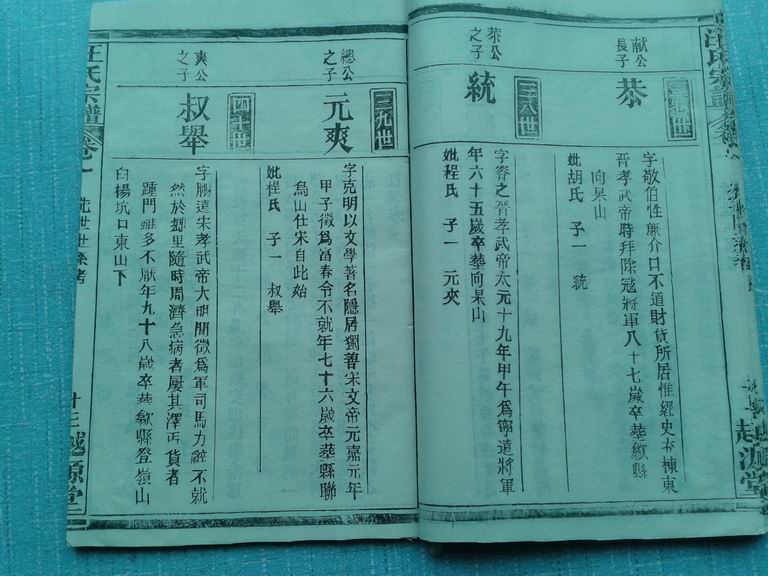 献公
長子
恭
字敬伯性廉介口不道財貨所居惟經史充棟東
晉孝武帝時拜除冦將軍八十七歲卒塟歙縣
向杲山
妣胡氏 子一 統
恭公
之子
三八世
統
字容之晉孝武帝太元十九年甲午爲寧遠將軍
年六十五歲卒塟向杲山
妣程氏 子一 元爽
總公
之子
三九世
元爽
字克明以文學著名隱居獨善宋文帝元嘉元年
甲子徵爲富春令不就年七十六歲卒塟縣聯
烏山仕宋自此始
妣程氏 子一 叔舉
爽公
之子
四十世
叔舉
字鵬遠宋孝武帝大明間徵爲軍司馬力辭不就
然於鄉里隨時周濟急病者屢其澤丐貨者
踵門雖多不厭年九十八歲卒塟歙縣登嶺山
白楊坑口東山下
汪氏宗譜 卷一 先世世系考 十三 越源堂